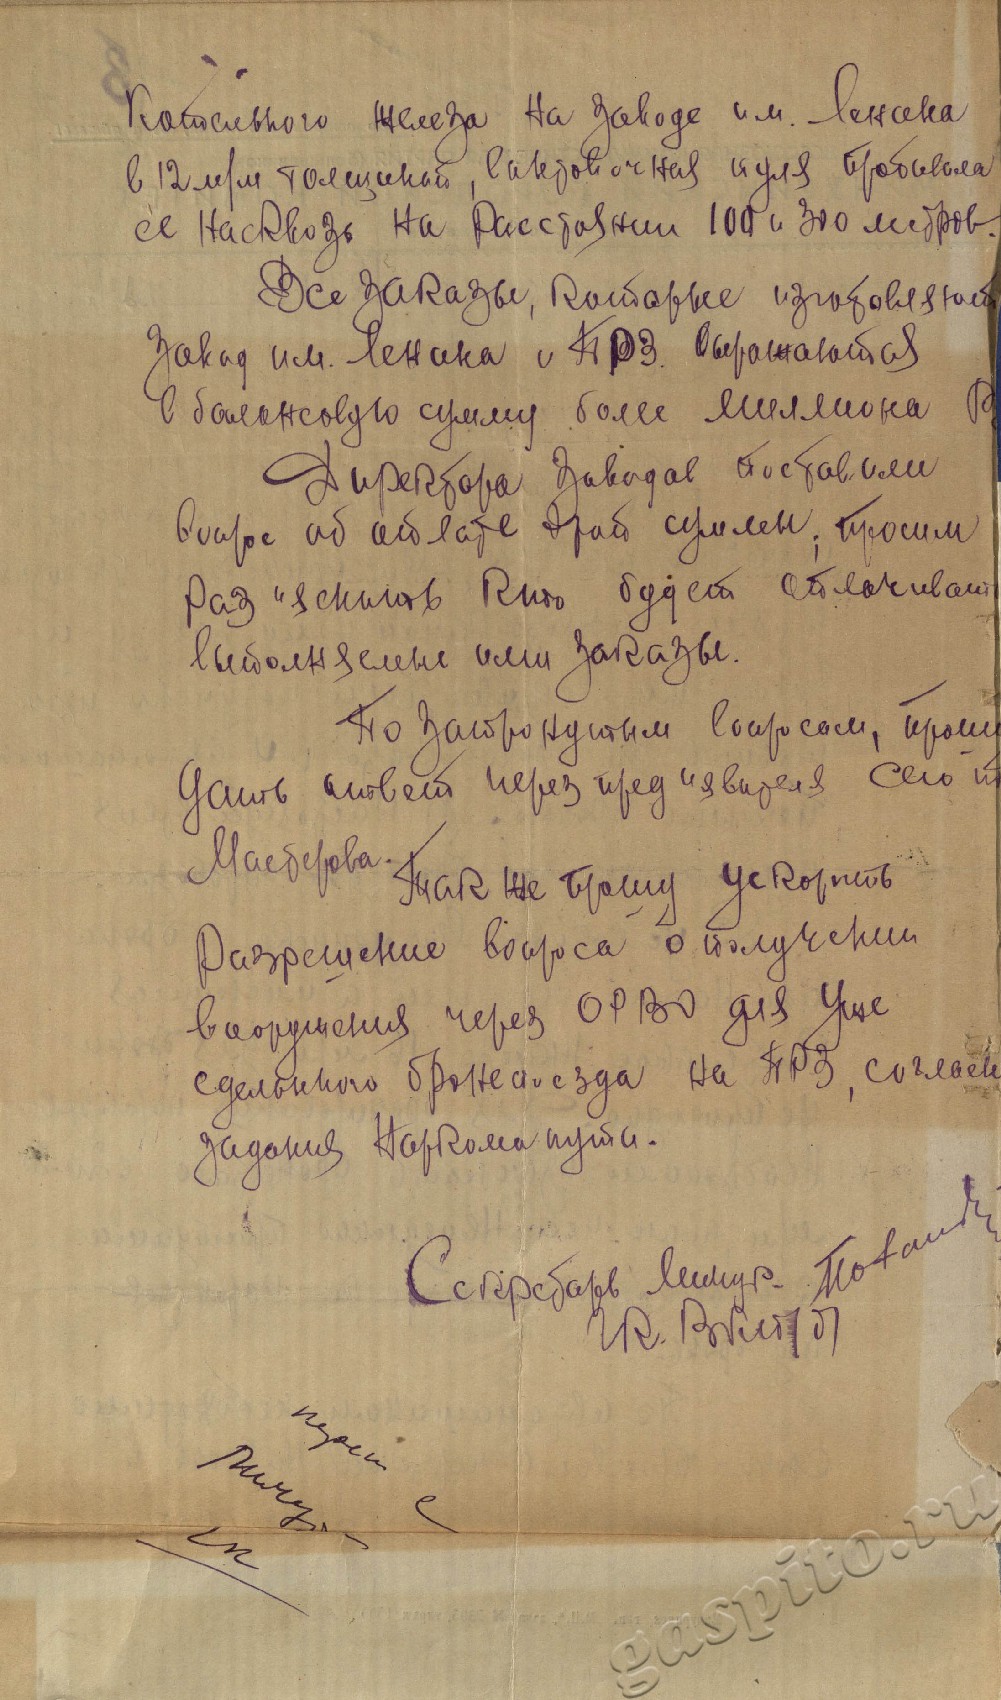 Котельного железа на заводе им. Ленина
в 12 м/м толщиной, винтовочная пуля пробивала
ее насквозь на расстоянии 100 и 300 метров.
Все заказы, которые изготовляют
завод им. Ленина и ПРЗ. выражаются
в балансовую сумму более миллиона Р
Директора заводов поставили
вопрос об оплате этой суммы, просим
раз"яснить кто будет оплачивать
выполняемые ими заказы.
По затронутым вопросам, прошу
дать ответ через пред"явителя сего т
Мастерова.
Так же прошу ускорить
разрешение вопроса о получении
вооружения через ОРВО для уже
сделанного бронепоезда на ПРЗ, согласн
задания Наркома пути.
Секретарь
РК. ВКП(б)
gaspito.ru